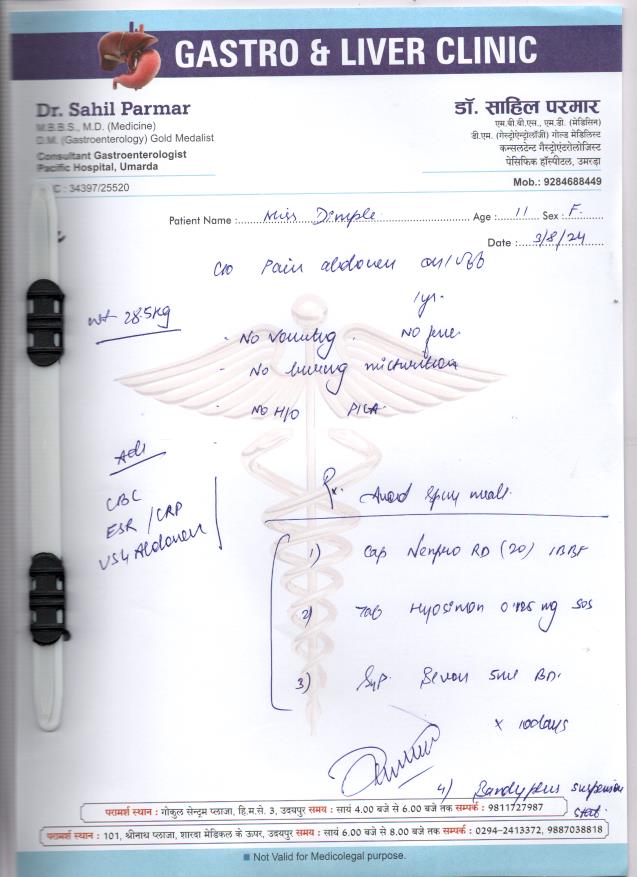 GASTRO & LIVER CLINIC
Dr. Sahil Parmar
M.B.B.S., M.D. (Medicine)
D.M. (Gastroenterology) Gold Medalist
Consultant Gastroenterologist
Pacific Hospital, Umarda
C : 34397/25520
डॉ. साहिल परमार
एम.बी.बी.एस., एम.डी. (मेडिसिन)
डी.एम. (गेस्ट्रोएन्ट्रोलॉजी) गोल्ड मेडिलिस्ट
कन्सलटेन्ट गैस्ट्रोएंटरोलोजिस्ट
पेसिफिक हॉस्पीटल, उमरड़ा
Mob.: 9284688449
Patient Name : Miss Dimple Age : 11 Sex : F
Date : 3/8/24
C/O Pain abdomen on/off
1yr.
wt 28.5kg
- No Vomiting. No fever
- No burning micturition
- No H/O PICA
Adv
CBC
ESR / CRP
USG Abdomen
Rx. Avoid Spicy meals
1) Cap Nexpro RD (20) 1BBF
2) Tab Hyosimon 0.125 mg SOS
3) Syp. 5ml BD.
x 10days
4) Bandyplus suspension
stat.
परामर्श स्थान : गोकुल सेन्ट्रम प्लाजा, हि.म.से. 3, उदयपुर समय : सायं 4.00 बजे से 6.00 बजे तक सम्पर्क : 9811727987
परामर्श स्थान : 101, श्रीनाथ प्लाजा, शारदा मेडिकल के ऊपर, उदयपुर समय : सायं 6.00 बजे से 8.00 बजे तक सम्पर्क : 0294-2413372, 9887038818
Not Valid for Medicolegal purpose.